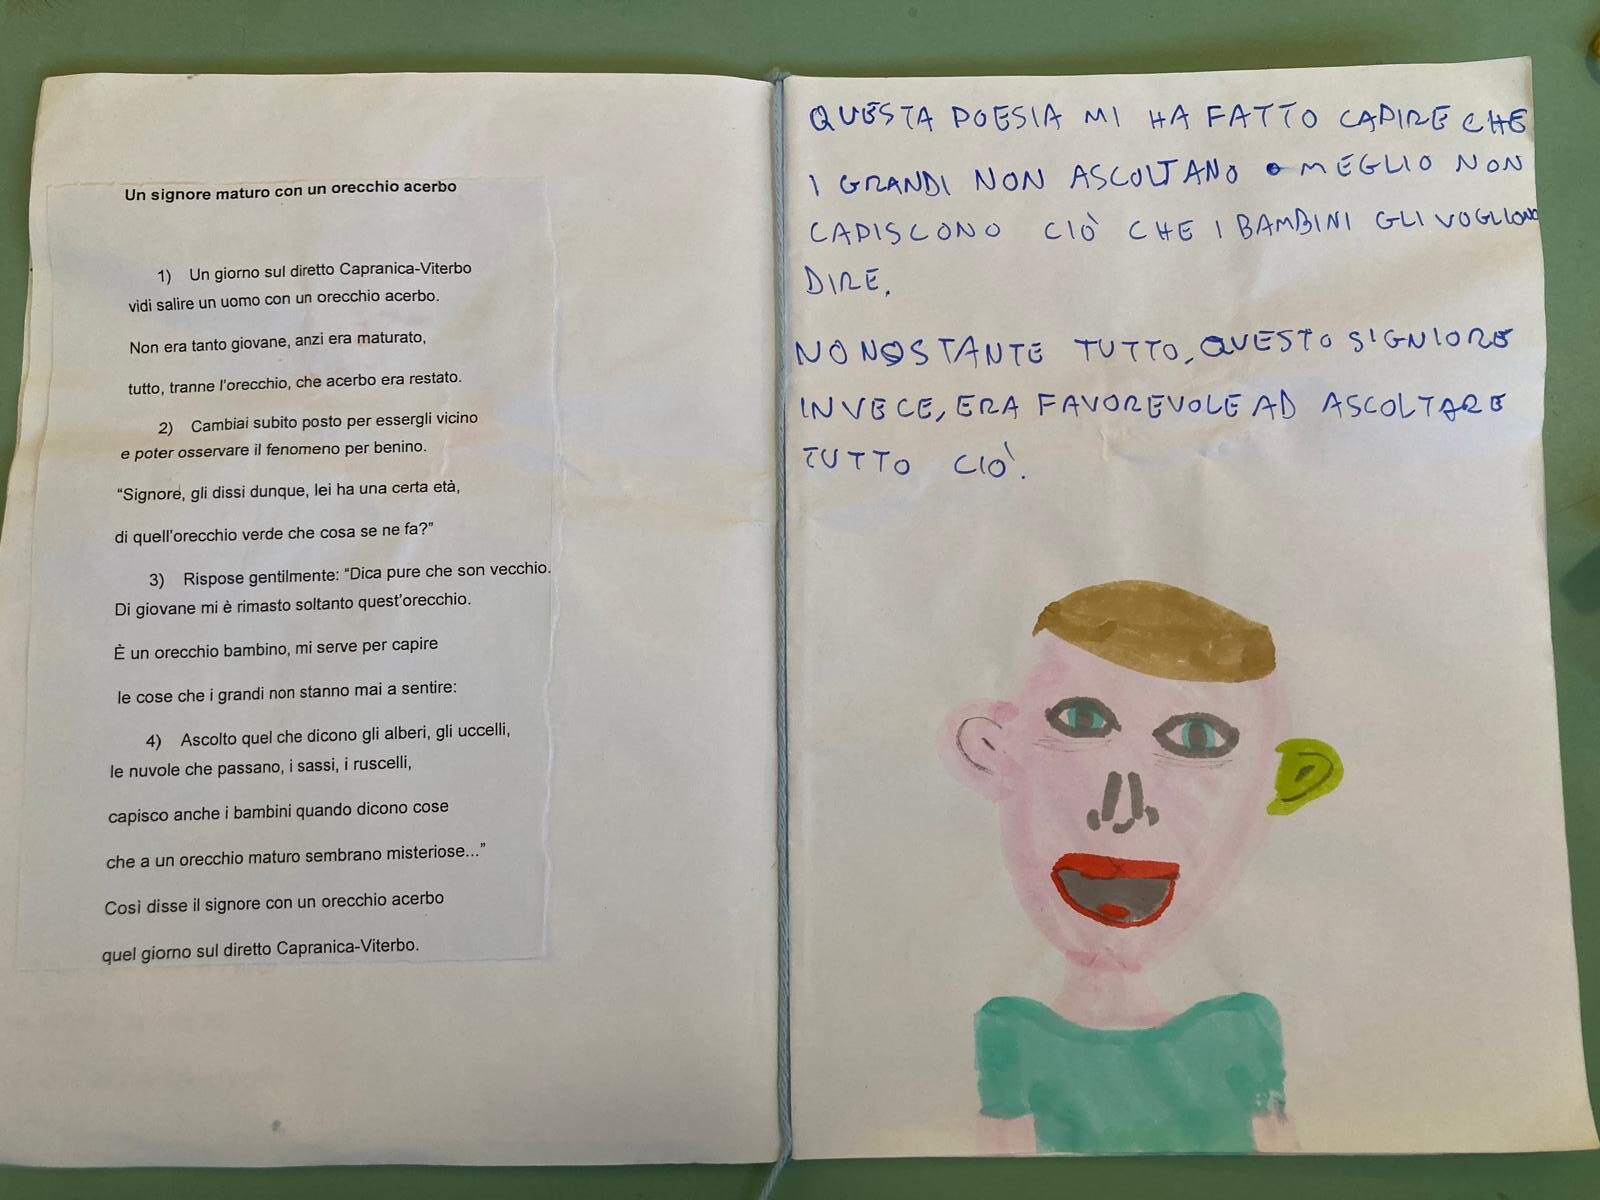 Un signore maturo con un orecchio acerbo
1) Un giorno sul diretto Capranica-Viterbo
vidi salire un uomo con un orecchio acerbo.
Non era tanto giovane, anzi era maturato,
tutto, tranne l'orecchio, che acerbo era restato.
2) Cambiai subito posto per essergli vicino
e poter osservare il fenomeno per benino.
“Signore, gli dissi dunque, lei ha una certa età,
di quell'orecchio verde che cosa se ne fa?”
3) Rispose gentilmente: “Dica pure che son vecchio.
Di giovane mi è rimasto soltanto quest'orecchio.
È un orecchio bambino, mi serve per capire
le cose che i grandi non stanno mai a sentire:
4) Ascolto quel che dicono gli alberi, gli uccelli,
le nuvole che passano, i sassi, i ruscelli,
capisco anche i bambini quando dicono cose
che a un orecchio maturo sembrano misteriose...”
Così disse il signore con un orecchio acerbo
quel giorno sul diretto Capranica-Viterbo.
QUESTA POESIA MI HA FATTO CAPIRE CHE
I GRANDI NON ASCOLTANO O MEGLIO NON
CAPISCONO CIÒ CHE I BAMBINI GLI VOGLIONO
DIRE.
NONOSTANTE TUTTO, QUESTO SIGNIORE
INVECE, ERA FAVOREVOLE AD ASCOLTARE
TUTTO CIÒ.